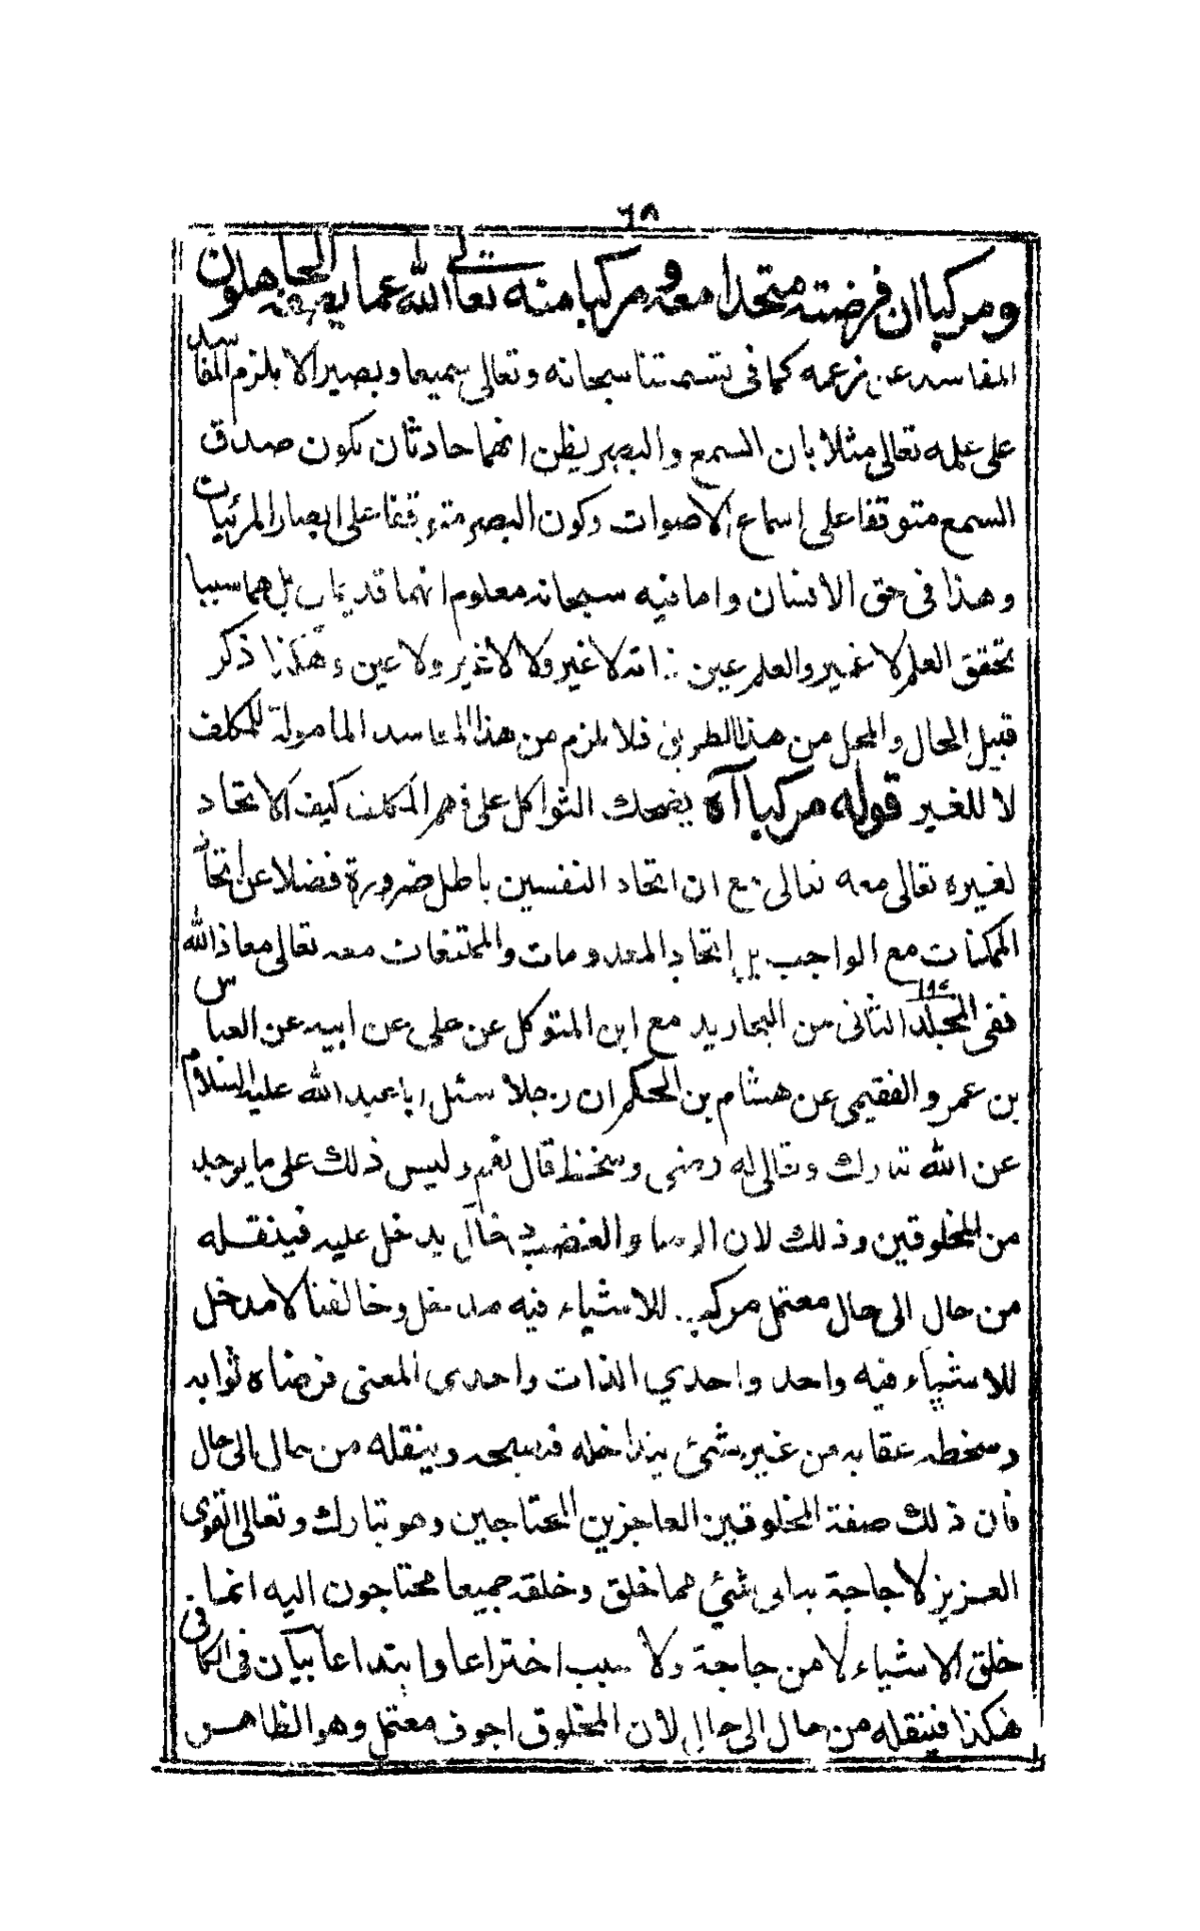 ٦٨
ومركبا ان فرضته متحدا معه ومركبا منه تعالى الله عما يصفه الجاهلون
المفاسد عن زعمه كما فى تسميتنا سبحانه وتعالى سميعا وبصيرا لا يلزم المفاسد
على علمه تعالى مثلا بان السمع والبصر يظن انهما حادثان بكون صدق
السمع متوقفا على اسماع الاصوات وكون البصر متوقفا على ابصار المرئيات
وهذا فى حق الانسان واما فيه سبحانه معلوم انهما قد بل هما سببا
تحقق العلم لا غير والعلم عين انه لا غير ولا لا غير ولا عين وهكذا ذكر
قبيل الحال والمحل من هذا الطريق فلا يلزم من هذا المفاسد المامولة للمكلف
لا للغير قوله مركبا آه يضحك الثواكل على فهم المكلف كيف الاتحاد
لغيره تعالى معه تعالى مع ان اتحاد النفسين باطل ضرورة فضلا عن اتحاد
الممكنات مع الواجب بل اتحاد المعدومات والممتنعات معه تعالى معاذ الله
ففى المجلد الثانى من البحار يد مع ابن المتوكل عن على عن ابيه عن العباس
بن عمرو الفقيمى عن هشام بن الحكم ان رجلا سئل ابا عبد الله عليه السلام
عن الله تبارك وتعالى له رضى وسخط قال نعم وليس ذلك على ما يوجد
من المخلوقين وذلك لان الرضا والغضب دخال يدخل عليه فينقله
من حال الى حال معتمل مركب للاشياء فيه مدخل وخالقنا لا مدخل
للاشياء فيه واحد واحدي الذات واحدى المعنى فرضاه ثوابه
وسخطه عقابه من غير شئ يتداخله فيهيجه وينقله من حال الى حال
فان ذلك صفة المخلوقين العاجزين المحتاجين وهو تبارك وتعالى القوى
العزيز لا حاجة به الى شئ مما خلق وخلقه جميعا محتاجون اليه انما
خلق الاشياء لا من حاجة ولا سبب اختراعا وابتداعا بيان فى الكافى
هكذا فينقله من حال الى حال لان المخلوق اجوف معتمل وهو الظاهر